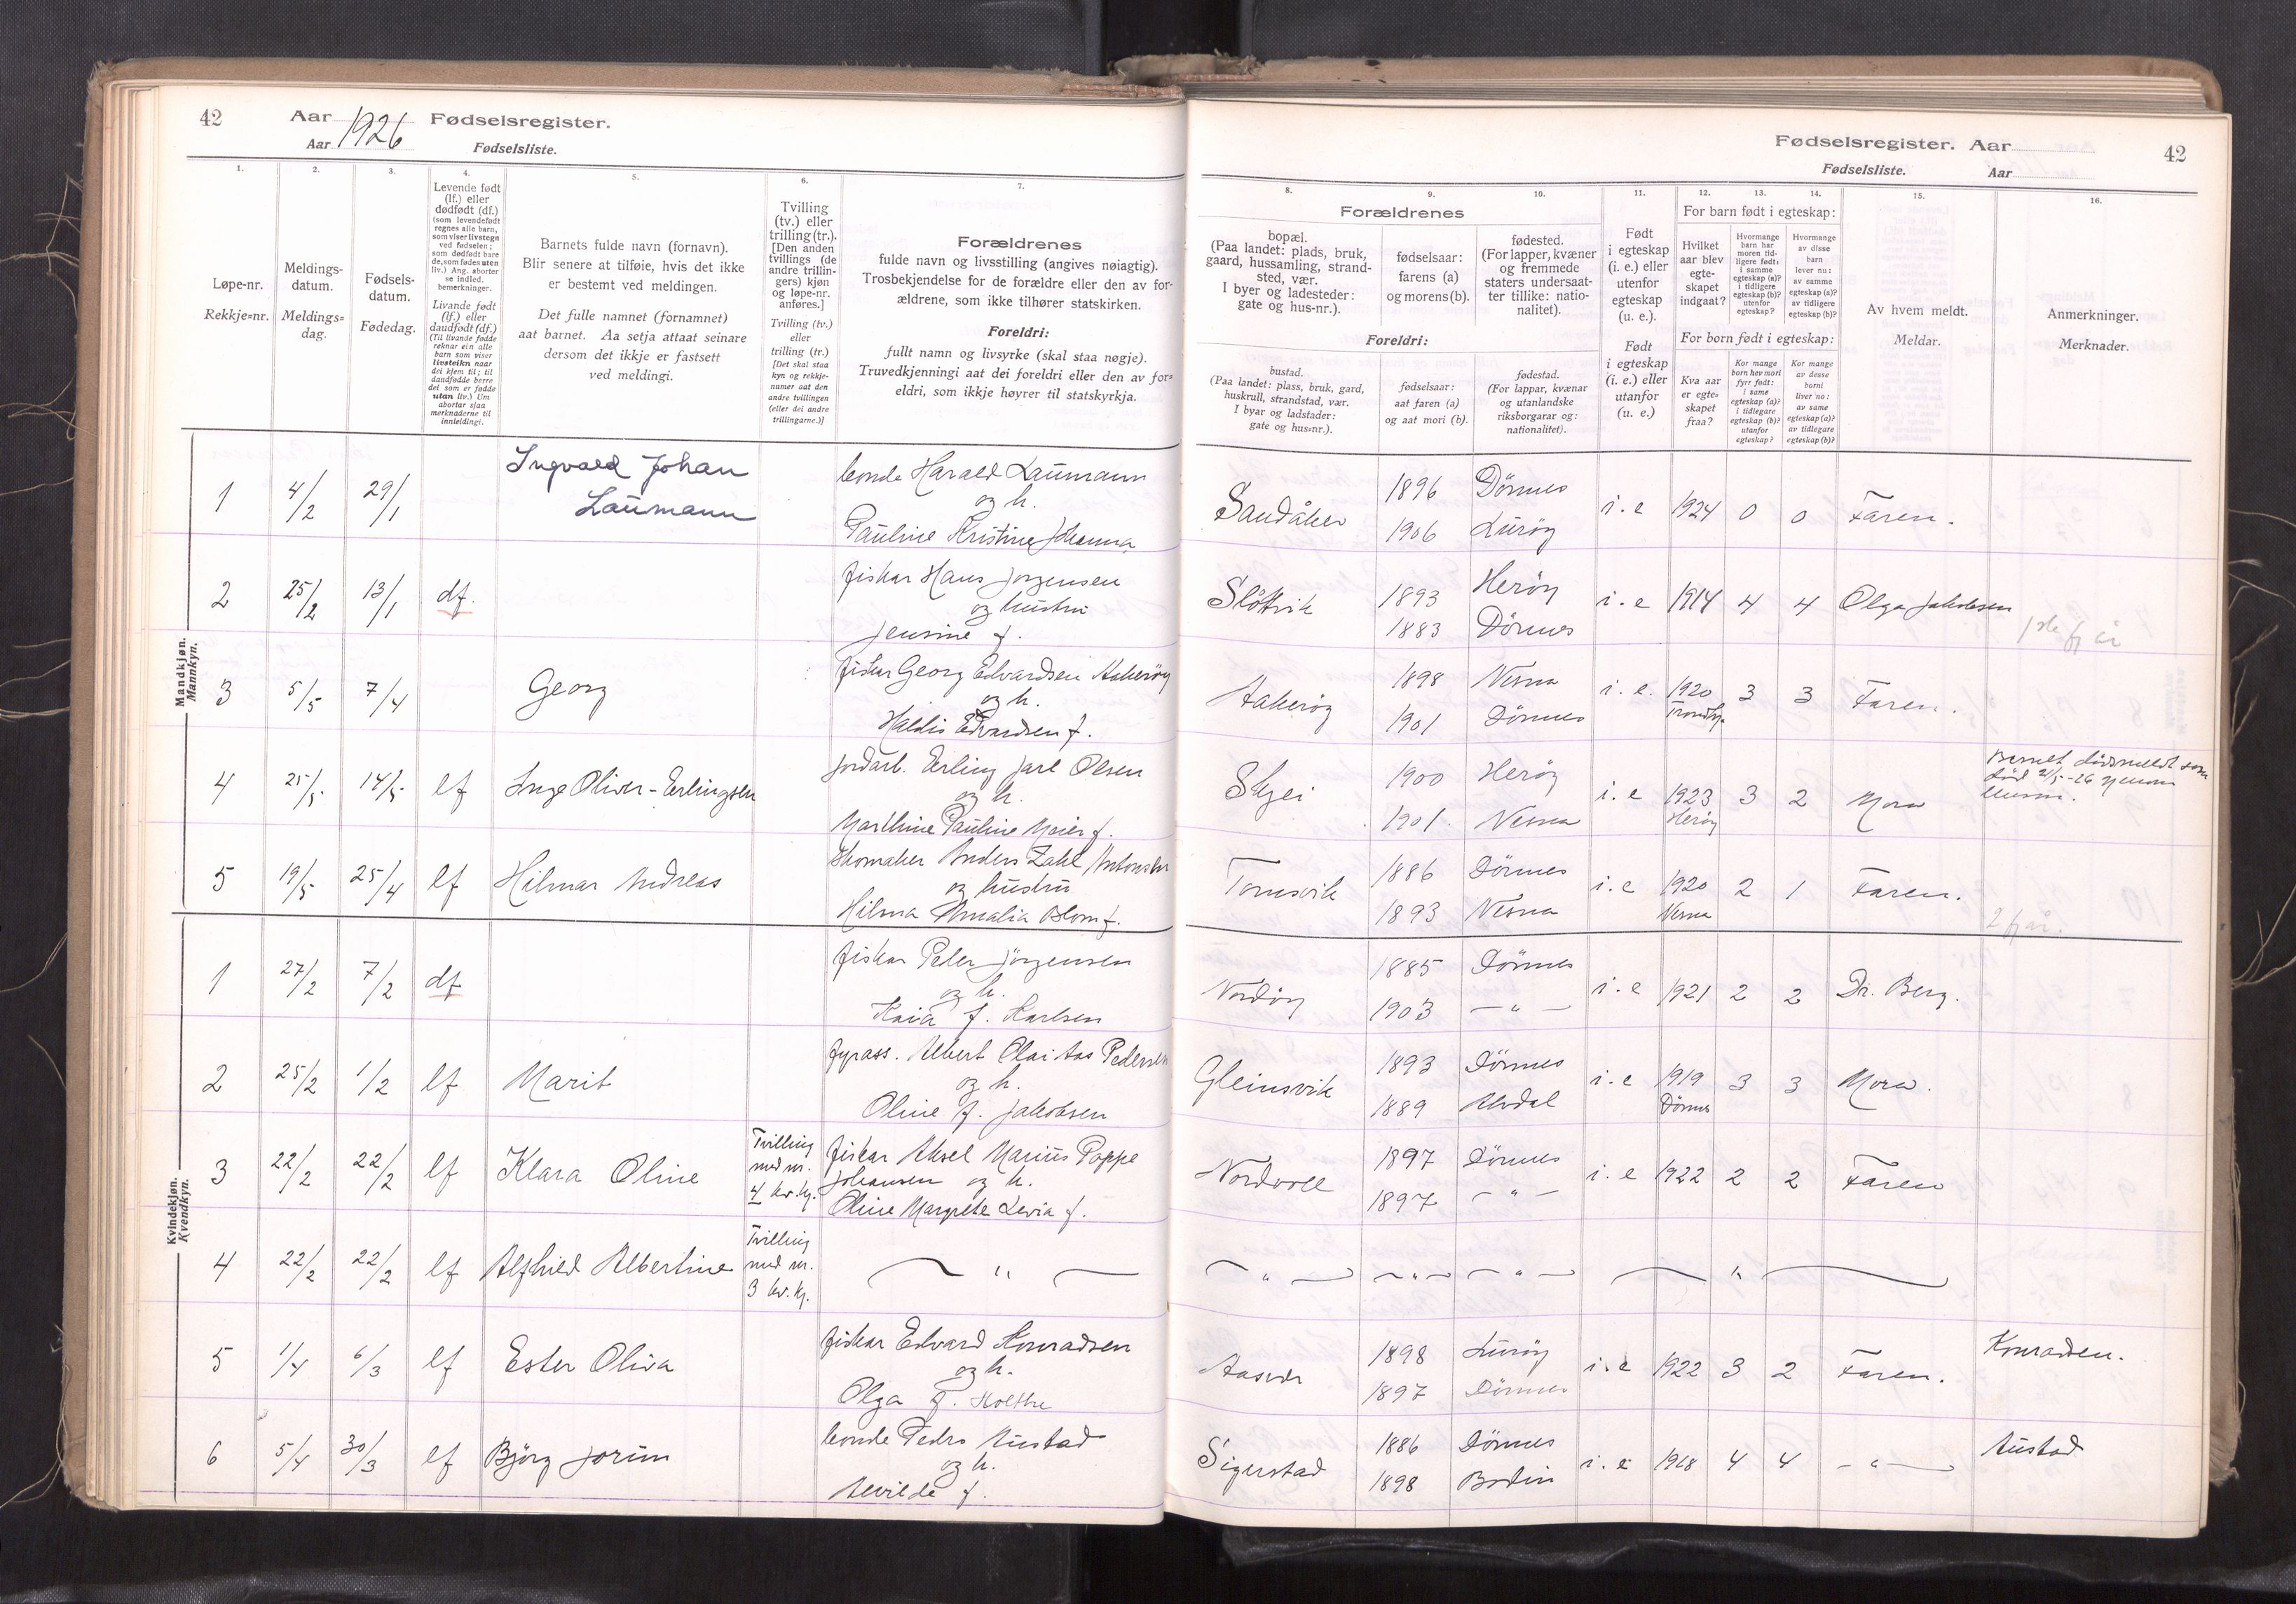 42
Aar 1926 Fødselsregister.
Aar Fødselsliste.
1.
2.
3.
4.
5.
6.
7.
Løpe-nr.
Rekkje=nr.
Meldings-
datum.
Meldings=
dag.
Fødsels-
datum.
Fødedag.
Levende født
(lf.) eller
dødfødt (df.)
(som levendefødt
regnes alle barn,
som viser livstegn
ved fødselen;
som dødfødt bare
de, som fødes uten
liv.) Ang. aborter
se indled.
bemerkninger.
Livande født
(lf.) eller
daudfødt (df.)
(Til livande fødde
reknar ein alle
barn som viser
livsteikn naar
dei kjem til; til
daudfødde berre
dei som er fødde
utan liv.) Um
abortar sjaa
merknaderne til
innleidingi.
Barnets fulde navn (fornavn).
Blir senere at tilføie, hvis det ikke
er bestemt ved meldingen.
Det fulle namnet (fornamnet)
aat barnet. Aa setja attaat seinare
dersom det ikkje er fastsett
ved meldingi.
Tvilling
(tv.) eller
trilling (tr.).
[Den anden
tvillings (de
andre trillin-
gers) kjøn
og løpe-nr.
anføres.]
Tvilling (tv.)
eller
trilling (tr.)
[Det skal staa
kyn og rekkje-
numer aat den
andre tvillingen
(eller dei andre
trillingarne.)]
Forældrenes
fulde navn og livsstilling (angives nøiagtig).
Trosbekjendelse for de forældre eller den av for-
ældrene, som ikke tilhører statskirken.
Foreldri:
fullt namn og livsyrke (skal staa nøgje).
Truvedkjenningi aat dei foreldri eller den av for=
eldri, som ikkje høyrer til statskyrkja.
Mandkjøn.
Mannkyn.
1 4/2 29/1 Ingvald Johan
Laumann
bonde Harald Laumann
og h.
Pauline Kristine Johanna
2 25/2 13/1 df.
fisker Hans Jorgensen
og hustru
Jensine f.
3 5/5 7/4 Georg
fisker Georg Edvardsen Aakerøy
og h.
Haldis Edvardsen f.
4 25/5 14/5 lf Inge Oliver - Erlingsen
jordarb. Erling Jarl Olsen
og h.
Marthine Pauline Meier f.
5 19/5 25/4 lf Hilmar Andreas
Skomaker Anders Zahl Antonsen
og hustru
Hilma Amalia Blom f.
Kvindekjøn.
Kvendkyn.
1 27/2 7/2 df
fisker Peter Jörgensen
og h.
Kaia f. Karlsen
2 25/2 1/2 lf Marit
fyrass. Albert Olai Aas Pedersen
og h.
Oline f. Jakobsen
3 22/2 22/2 lf Klara Oline
Tvilling
med nr.
4 kv.kj.
fisker Aksel Marius Poppe
Johansen og h.
Oline Margrete Levia f.
4 22/2 22/2 lf Alfhild Albertine
Tvilling
med nr.
3 kv.kj.
— " —
5 1/4 6/3 lf Ester Oliva
fisker Edvard Konradsen
og h.
Olga f. Holthe
6 5/4 30/3 lf Björg Jorun
bonde Pedro Austad
og h.
Alvilde f.
Fødselsregister. Aar
42
Fødselsliste. Aar
8.
9.
10.
11.
12.
13.
14.
15.
16.
Forældrenes
bopæl.
(Paa landet: plads, bruk,
gaard, hussamling, strand-
sted, vær.
I byer og ladesteder:
gate og hus-nr.).
fødselsaar:
farens (a)
og morens (b).
fødested.
(For lapper, kvæner
og fremmede
staters undersaat-
ter tillike: natio-
nalitet).
Foreldri:
bustad.
(Paa landet: plass, bruk, gard,
huskrull, strandstad, vær.
I byar og ladstader:
gate og hus=nr.).
fødselsaar:
aat faren (a)
og aat mori (b).
fødestad.
(For lappar, kvænar
og utanlandske
riksborgarar og:
nationalitet).
Født
i egteskap
(i. e.) eller
utenfor
egteskap
(u. e.).
Født
i egteskap
(i. e.) eller
utanfor
(u. e.)
For barn født i egteskap:
Hvilket
aar blev
egte-
skapet
indgaat?
Hvormange
barn har
moren tid-
ligere født:
i samme
egteskap (a)?
i tidligere
egteskap (b)?
utenfor
egteskap?
Hvormange
av disse
barn
lever nu:
av samme
egteskap (a)?
av tidligere
egteskap (b)?
For born født i egteskap:
Kva aar
er egte=
skapet
fraa?
Kor mange
born hev mori
fyrr født:
i same
egteskap (a)?
i tidlegare
egteskap (b)?
utanfor
egteskap?
Kor mange
av desse
borni
liver no:
av same
egteskap (a)?
av tidlegare
egteskap (b)?
Av hvem meldt.
Meldar.
Anmerkninger.
Merknader.
Sandåker 1896 Dönnes i.e 1924 0 0 Faren.
1906 Luröy
Slottvik 1893 Heröy i.e 1914 4 4 Olga Jakobsen
1883 Dönnes
Aakeröy 1898 Nesna i.e. 1920 3 3 Faren.
1901 Dönnes Trondhj.
Skjei 1900 Heröy i.e 1923 3 2 Mora
1901 Nesna Heröy
Barnet dödsmeldt som
död 21/5-26
Tomsvik 1886 Dönnes i.e 1920 2 1 Faren.
1893 Nesna Nesna
Nordöy 1885 Dönnes i.e 1921 2 2 Dr. Berg.
1903 — " —
Gleinsvik 1893 Dönnes i.e 1919 3 3 Mora.
1889 Alvdal Dönnes
Nordvoll 1897 Dönnes i.e 1922 2 2 Faren
1897 — " —
— " — — " — — " — — " —
Aasvær 1898 Luröy i.e 1922 3 2 Faren. Konradsen.
1897 Dönnes
Sigerstad 1886 Dönnes i.e 1918 4 4 — " — Austad
1898 Bodin